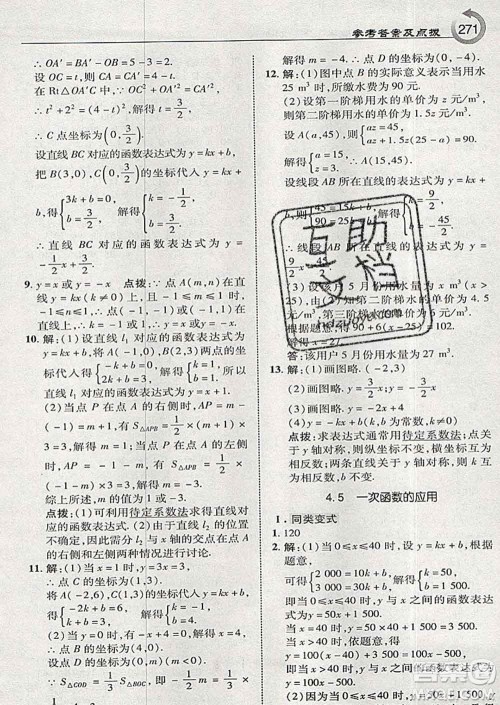 参考答案及点拨
271
∴OA′=BA−BD′=5−3=2.
设OC=t,则A′C=AC=4−t.
在Rt△OA′C中,OC²+OA′²=A′C²,
∴t²+2²=(4−t)²,解得t=3/2,
∴C点坐标为(0,3/2).
设直线BC对应的函数表达式为y=kx+b,
把B(3,0),C(0,3/2)的坐标代入,
得{3k+b=0, b=3/2, 解得{k=−1/2, b=3/2.
∴直线BC对应的函数表达式为y=
−1/2x+3/2.
9. y=x或y=−x 点拨:∵点A(m,n)在直
线y=kx(k≠0)上,−1≤m≤1时,
−1≤n≤1,∴点(−1,−1)或(1,−1)都
在直线上,∴k=1或−1,∴y=x或y=−x.
10. 解:(1)设直线l₁的表达式为y=kx+b,
将A(−1,0),B(2,3)两点的坐
标代入得{−k+b=0, 2k+b=3, 解得{k=1, b=1.
因此直线l₁对应的函数表达式为y=x+1.
(2)当点P在点A的右侧时,AP=m−
(−1)=m+1,有S△APB=1/2×(m+1)×
3=3,解得m=1.
当点P在点A的左侧时,AP=−1−m,
有S△APB=1/2×(−1−m)×3=3,解得m=
−3.
综上所述,m的值为1或−3.
点拨:(1)可利用待定系数法求得直线对
应的函数表达式;(2)由于点P的位置
不确定,从而造成直线l₂与x轴交点的
不确定,因此要分点P在点A的右侧和
左侧两种情况进行讨论.
11. 解:(1)当x=1时,y=3x=3,
∴点C的坐标为(1,3).
将A(−2,6),C(1,3)的坐标代入y=kx+
b,得{−2k+b=6, k+b=3, 解得{k=−1, b=4.
(2)当y=0时,有−x+4=0,解得x=4,
∴点B的坐标为(4,0).
设点D的坐标为(0,m)(m<0),
∵S△COD=1/3S△BOC,即−1/2m=1/3×1/2×
解得m=−4,
∴点D的坐标为(0,−4).
12. 解:(1)图中点B的实际意义表示当用水
25 m³时,所缴水费为90元.
(2)设第一阶梯用水的单价为x元/m³,
则第二阶梯用水的单价为2x元/m³,
设A(a,45),则{ax=45,
解得{a=15, x=3.
∴A(15,45).
设线段AB所在直线的表达式为y=kx+
b,则{45=15k+b, 90=25k+b, 解得{k=9/2, b=−45/2.
∴线段AB所在直线的表达式为y=
9/2x−45/2.
(3)设该户5月份用水量为x m³(x>
25),由(2)知第二阶梯水的单价为6元/
m³,第三阶梯水的单价为6元/m³.
根据题意,得90+6(x−25)=102,
解得x=27.
答:该用户5月份用水量为27 m³.
13. 解:(1)画图略. (−2,3)
(2)画图略. y=−3/2x y=−3/2x
(3)y=−2x+4
(4)y=−kx+b(k,b为常数,k≠0)
点拨:求表达式通常用待定系数法;点关
于y轴对称,则纵坐标不变,横坐标互为
相反数;两条直线关于y轴对称,则k互为
相反数,b相等.
4.5 一次函数的应用
1. 同类变式
1. 120
2. 解:(1)当0≤x≤40时,设y与x之间的
函数表达式为y=kx+b,
得{2 000=10k+b, 3 000=30k+b, 解得{k=50, b=1 500.
即当0≤x≤40时,y与x之间的函数表
达式为y=50x+1 500.
当x>40时,依题意,得
y=100(x−40)+50×40+1 500,
即y=100x−500.
即当x>40时,y与x之间的函数表达式
为y=100x−500.
(2)当0≤x≤40时,y=50x+1 500≤
互助文档